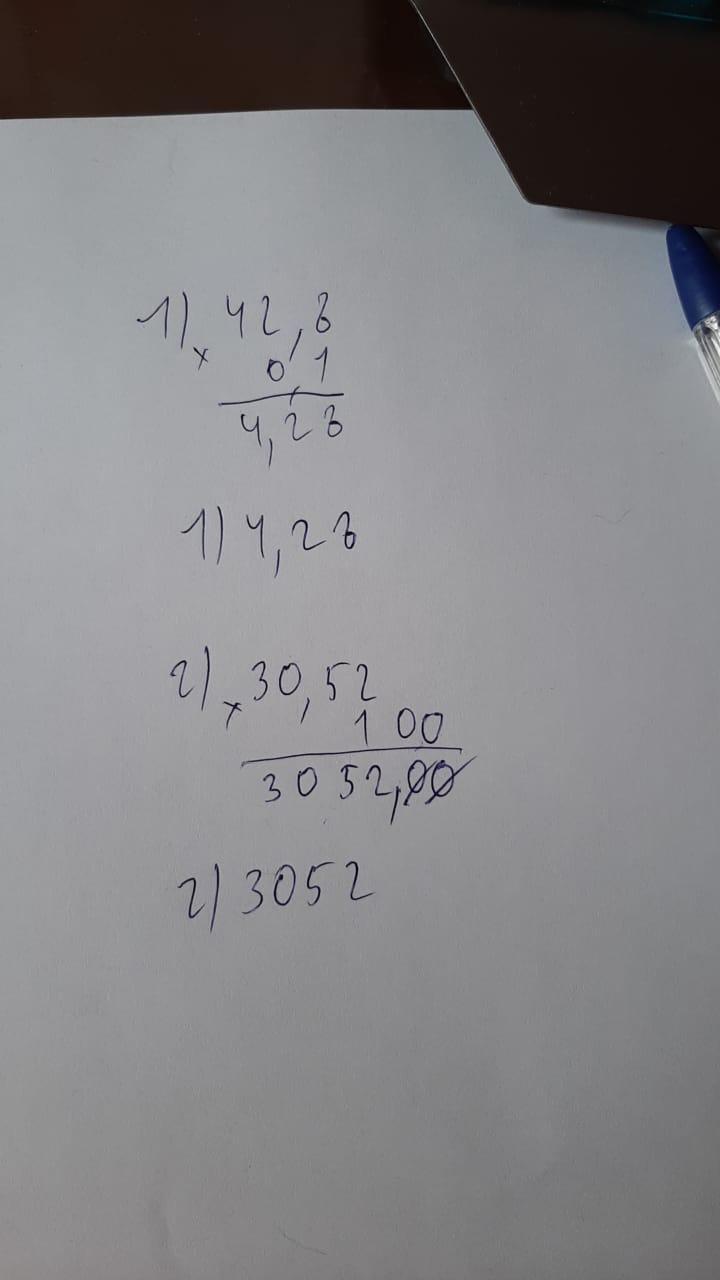 1) 42,8
× 0,1
4,28
1) 4,28
2) × 30,52
100
3052,00
2) 3052